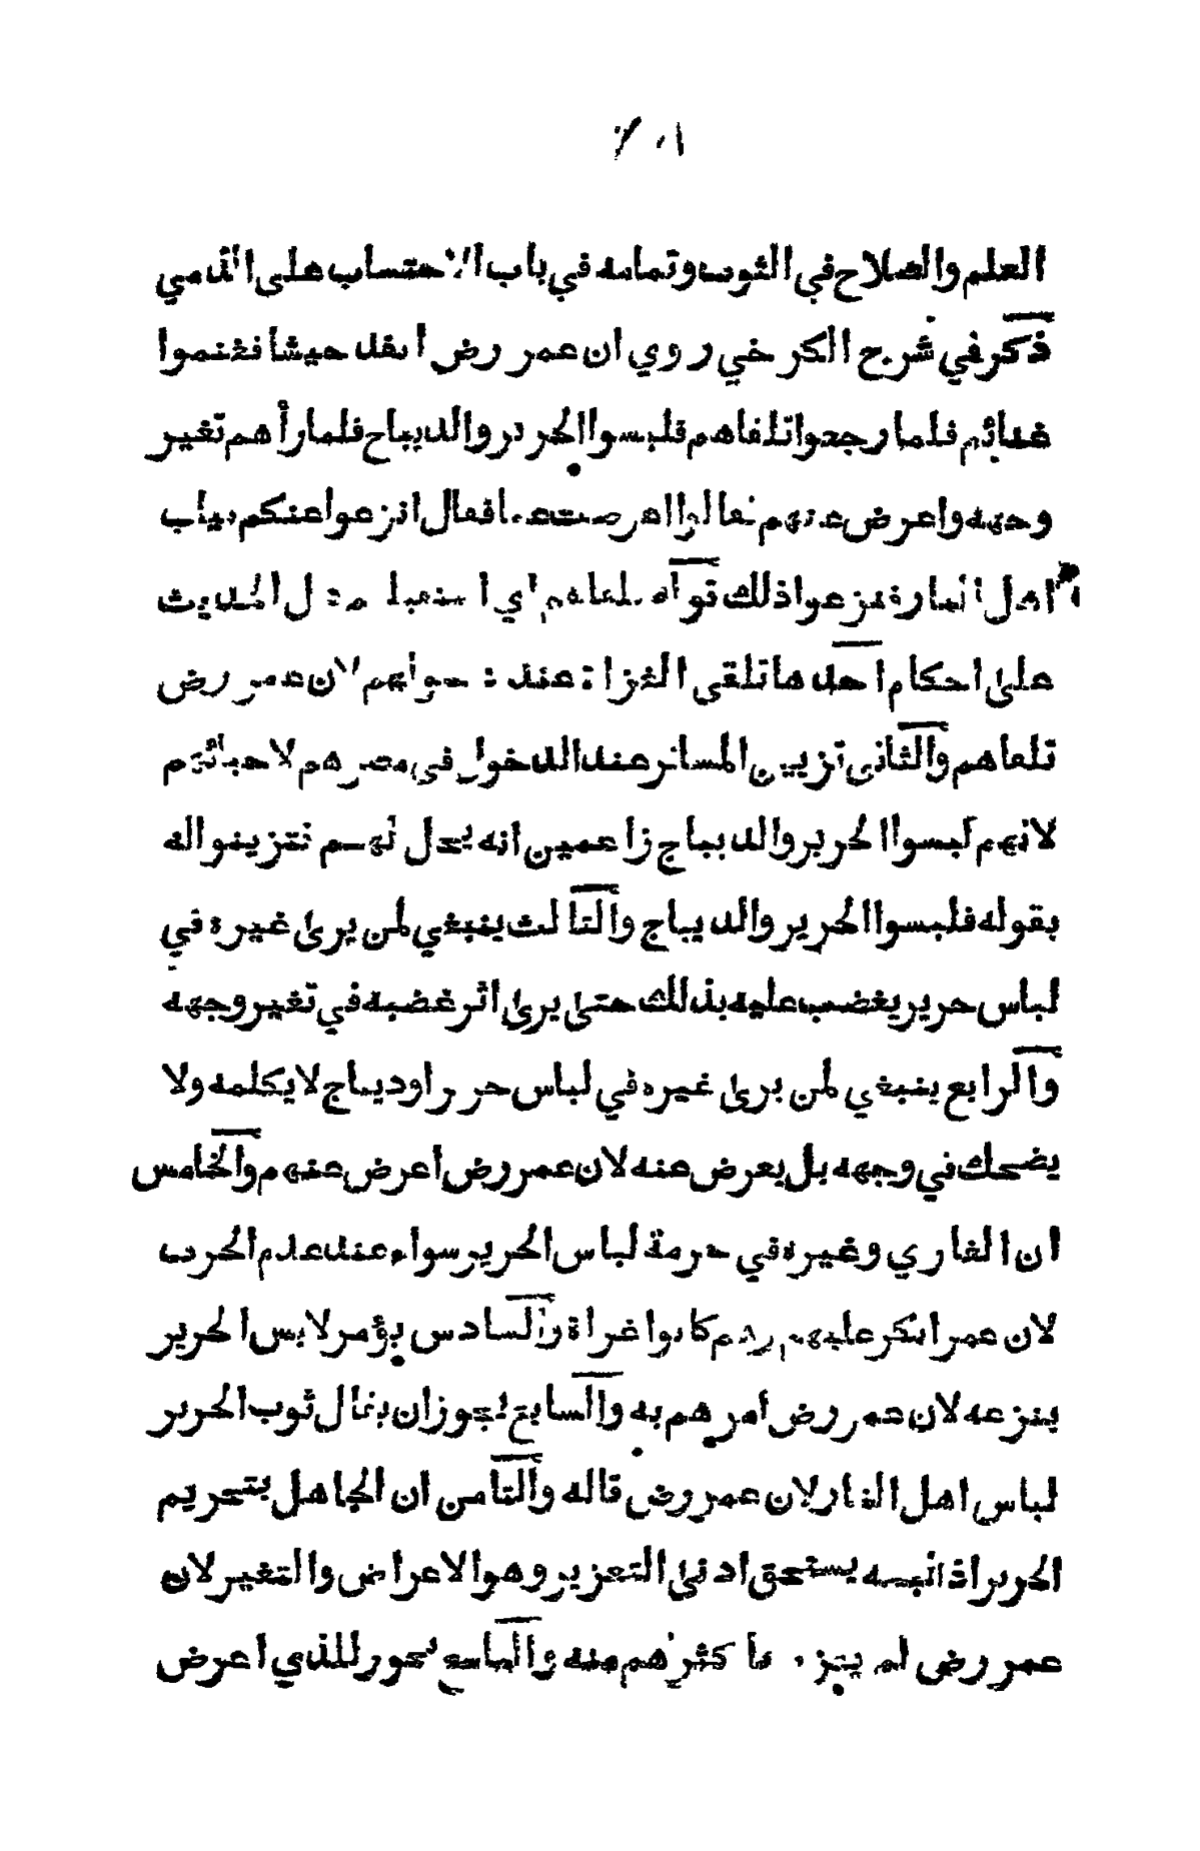 العلم والصلاح في الثوب وتمامه في باب الاحتساب على الذمي
ذكر في شرح الكرخي روي ان عمر رض انفذ جيشا فغنموا
غنائم فلما رجعوا تلقاهم فلبسوا الحرير والديباج فلما رأهم تغير
وجهه واعرض عنهم فقالوا اعرضت عنا فقال انزعوا عنكم ثياب
اهل النار فنزعوا ذلك قوله تلقاهم اي استقبلهم دل الحديث
على احكام احدها تلقى الغزاة عند رجوعهم لان عمر رض
تلقاهم والثانى تزيين المسافر عند الدخول في مصرهم لاحبائهم
لانهم لبسوا الحرير والديباج زاعمين انه يحل لهم فتزينوا له
بقوله فلبسوا الحرير والديباج والثالث ينبغي لمن يرى غيره في
لباس حرير يغضب عليه بذلك حتى يرى اثر غضبه في تغير وجهه
والرابع ينبغي لمن يرى غيره في لباس حرير او ديباج لا يكلمه ولا
يضحك في وجهه بل يعرض عنه لان عمر رض اعرض عنهم والخامس
ان الغازي وغيره في حرمة لباس الحرير سواء عند عدم الحرب
لان عمر انكر عليهم وهم كانوا غزاة والسادس يؤمر لابس الحرير
بنزعه لان عمر رض امرهم به والسابع يجوز ان يقال ثوب الحرير
لباس اهل النار لان عمر رض قاله والثامن ان الجاهل بتحريم
الحرير اذا لبسه يستحق ادنى التعزير وهو الاعراض والتغير لان
عمر رض لم يزد اكثرهم منه والتاسع يجوز للذي اعرض